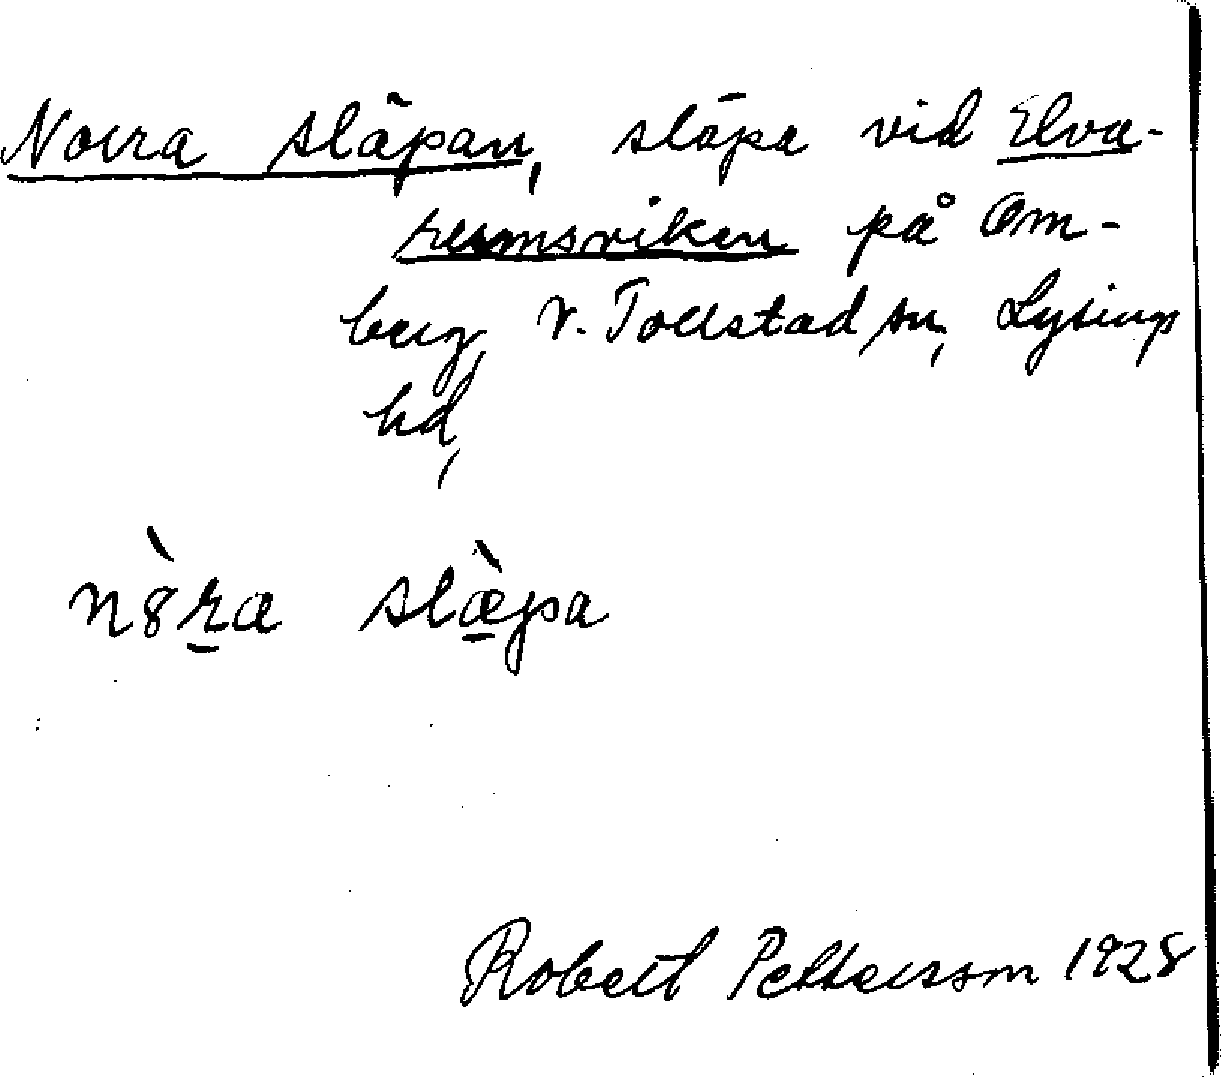 Norra släpan, släpa vid Elva-
rumsviken på Om-
berg, V. Tollstad sn, Lysings
hd,
n8̀ra slæ̀pa
Robert Pettersson 1928